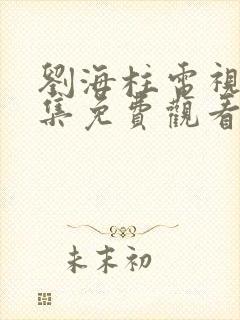 劉海柱電視
集免費觀看
未末初